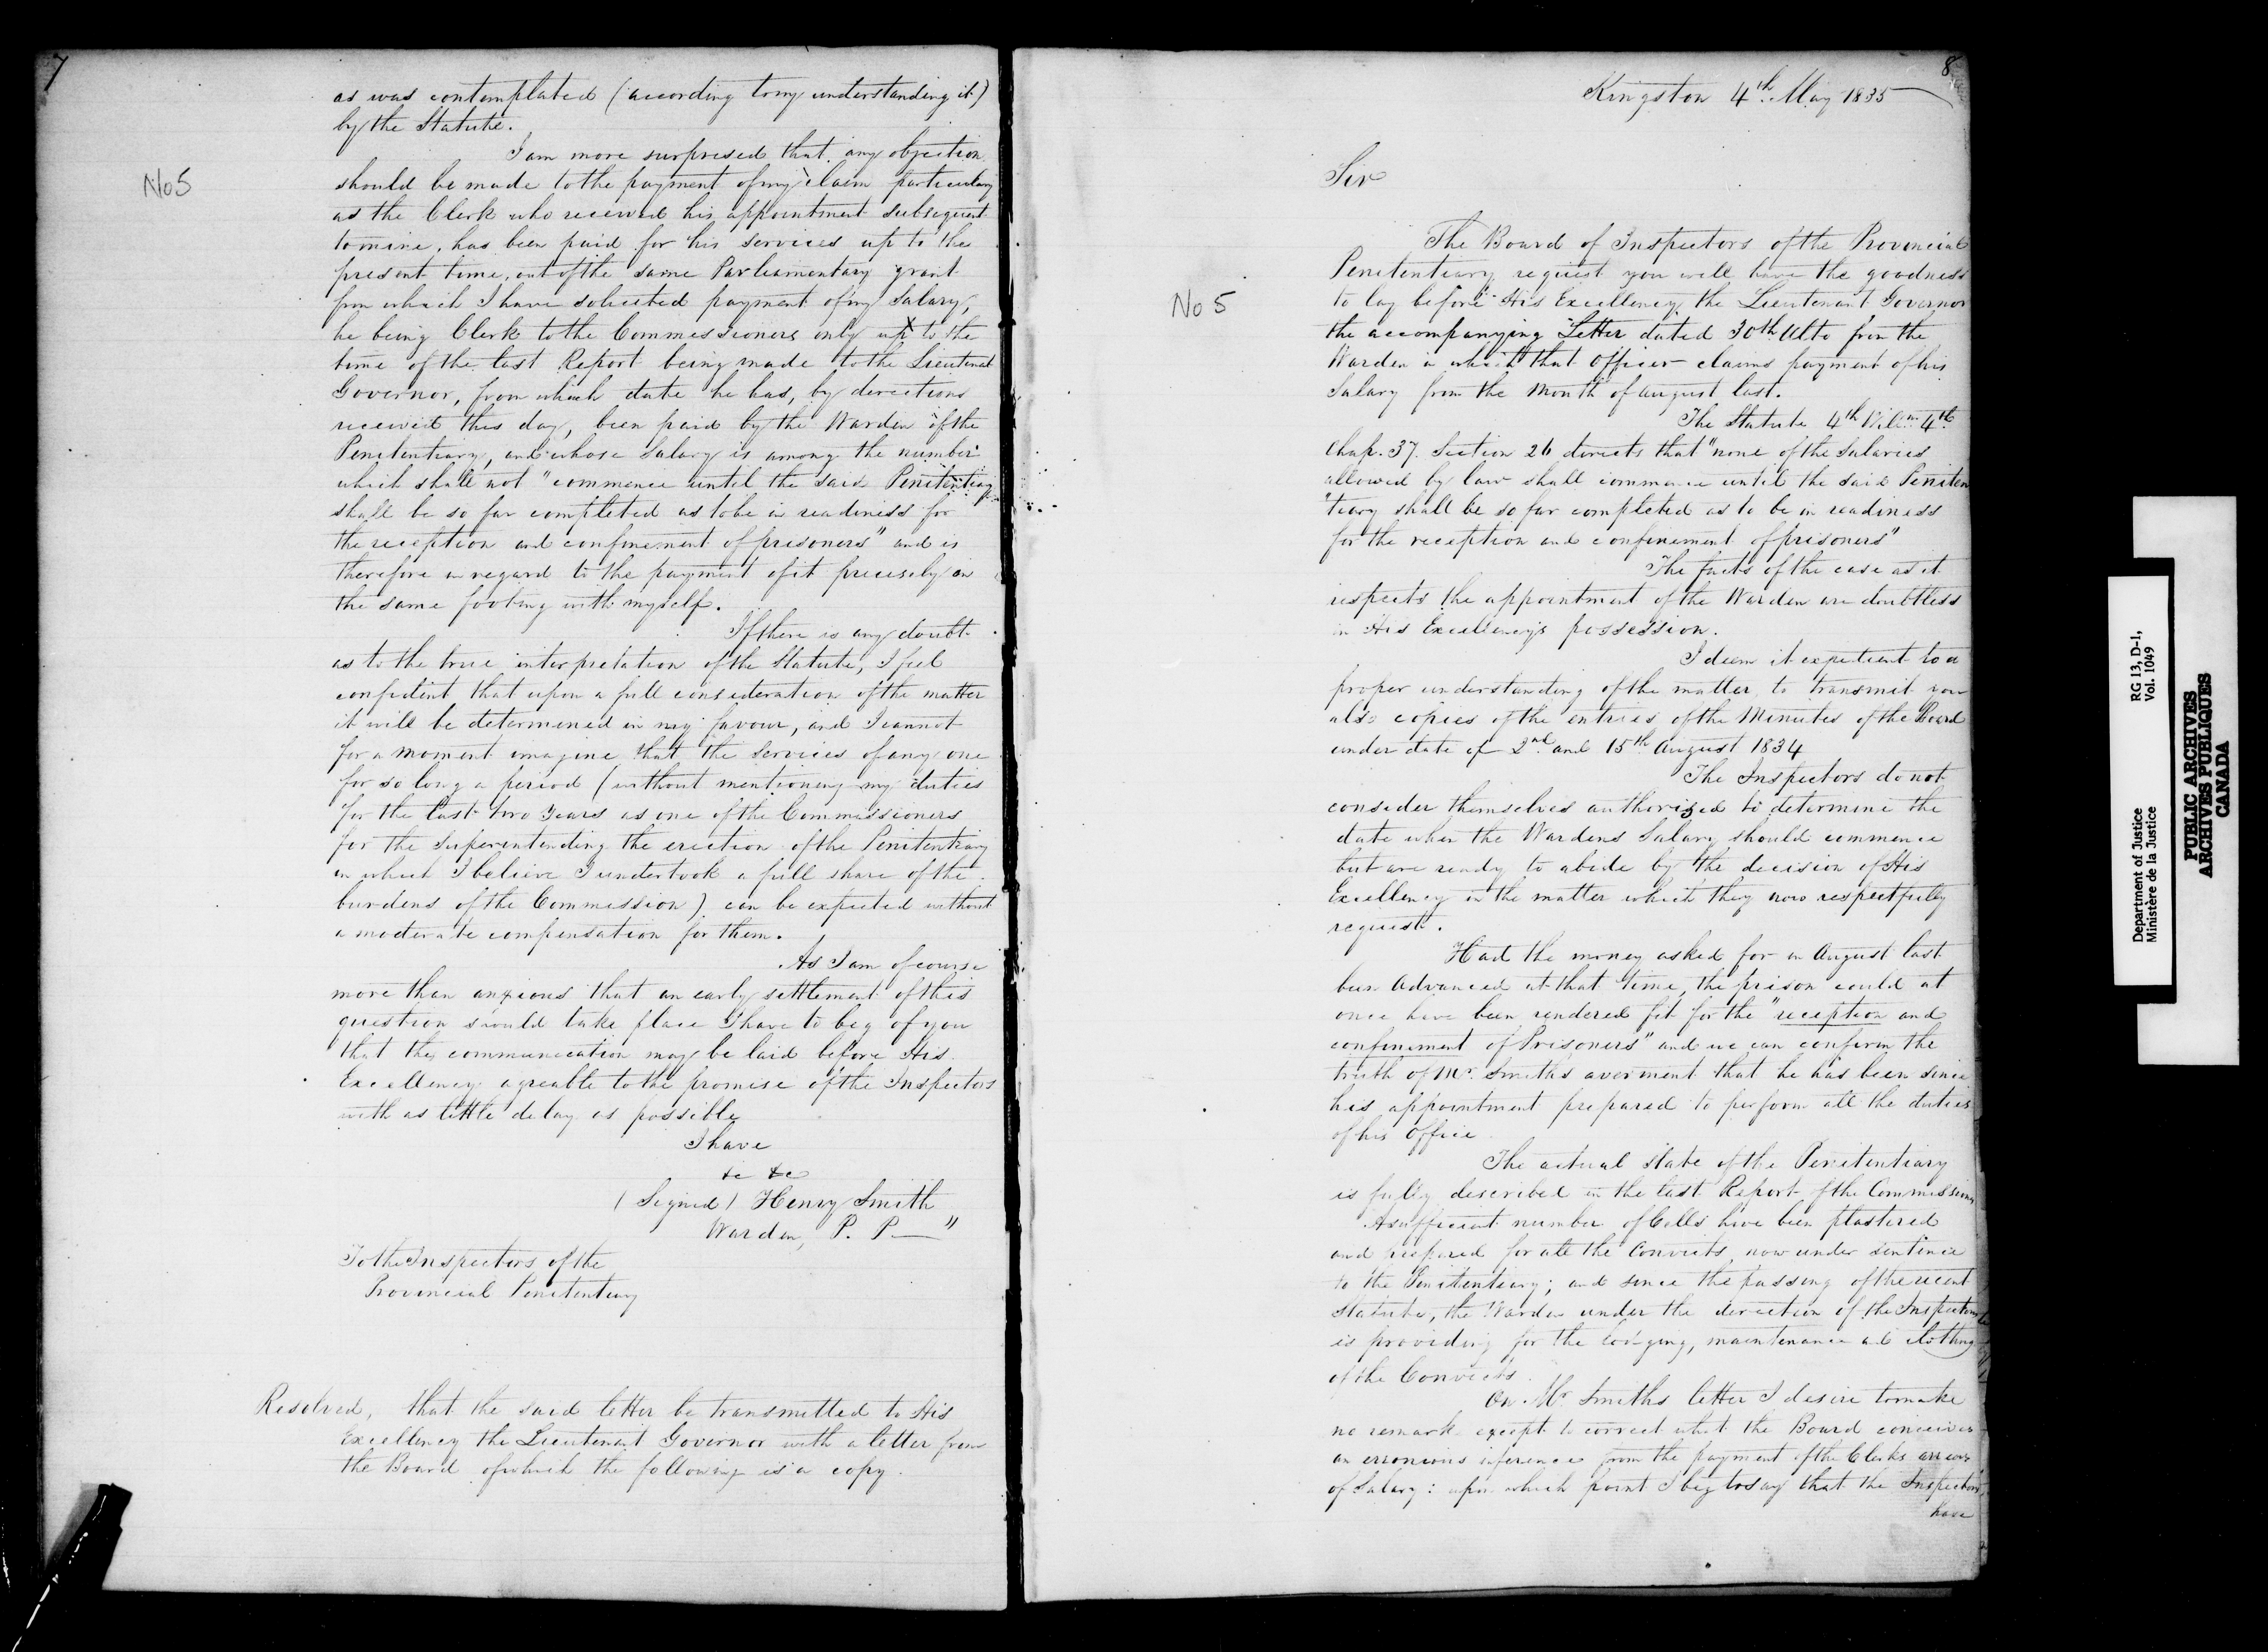 7
No 5
as was contemplated (according to my understanding it)
by the Statute.
I am more surprised that any objection
should be made to the payment of my claim particularly
as the Clerk who received his appointment subsequent
to mine, has been paid for his services up to the
present time, out of the same Parliamentary grant
from which I have solicited payment of my Salary,
he being Clerk to the Commissioners only up to the
time of the last Report being made to the Lieutenant
Governor, from which date he has, by directions
received this day, been paid by the Warden of the
Penitentiary, and whose Salary is among the number
which shall not "commence until the said Penitentiary
shall be so far completed as to be in readiness for
the reception and confinement of prisoners" and is
therefore in regard to the payment of it precisely on
the same footing with myself.
If there is any doubt
as to the true interpretation of the Statute, I feel
confident that upon a full consideration of the matter
it will be determined in my favour, and I cannot
for a moment imagine that the services of any one
for so long a period (without mentioning my duties
for the last two years as one of the Commissioners
for the Superintending the erection of the Penitentiary
in which I believe I undertook a full share of the
burdens of the Commission) can be expected without
a moderate compensation for them.
As I am of course
more than anxious that an early settlement of this
question should take place I have to beg of you
that this communication may be laid before His
Excellency agreable to the promise of the Inspectors
with as little delay as possible
I have
&c &c
(Signed) Henry Smith
Warden, P. P. "
To the Inspectors of the
Provincial Penitentiary
Resolved, that the said letter be transmitted to His
Excellency the Lieutenant Governor with a letter from
the Board of which the following is a copy.
8
Kingston 4th May 1835
Sir
No 5
The Board of Inspectors of the Provincial
Penitentiary request you will have the goodness
to lay before His Excellency the Lieutenant Governor
the accompanying Letter dated 30th Ulto from the
Warden in which that Officer claims payment of his
Salary from the Month of August last.
The Statute 4th Willm 4th
Chap. 37. Section 26 directs that "none of the Salaries
allowed by law shall commence until the said Peniten
"tiary shall be so far completed as to be in readiness
for the reception and confinement of prisoners"
The facts of the case as it
respects the appointment of the Warden are doubtless
in His Excellency's possession.
I deem it expedient to a
proper understanding of the matter to transmit you
also copies of the entries of the Minutes of the Board
under date of 2nd and 15th August 1834
The Inspectors do not
consider themselves authorized to determine the
date when the Wardens Salary should commence
but are ready to abide by the decision of His
Excellency in the matter which they now respectfully
request.
Had the money asked for in August last
been Advanced at that time, the prison could at
once have been rendered fit for the "reception and
confinement of Prisoners" and we can confirm the
truth of Mr. Smith's averment that he has been since
his appointment prepared to perform all the duties
of his Office
The actual state of the Penitentiary
is fully described in the last Report of the Commissioners
A sufficient number of Cells have been plastered
and prepared for all the Convicts now under sentence
to the Penitentiary; and since the passing of the recent
Statute, the Warden under the direction of the Inspectors
is providing for the lodging, maintenance and clothing
of the Convicts.
On Mr. Smiths letter I desire to make
no remark except to correct what the Board conceives
an erronious inference from the payment of the Clerks arrears
of Salary: upon which point I beg to say that the Inspectors,
have
Department of Justice
Ministère de la Justice
RG 13, D-1,
Vol. 1049
PUBLIC ARCHIVES
ARCHIVES PUBLIQUES
CANADA